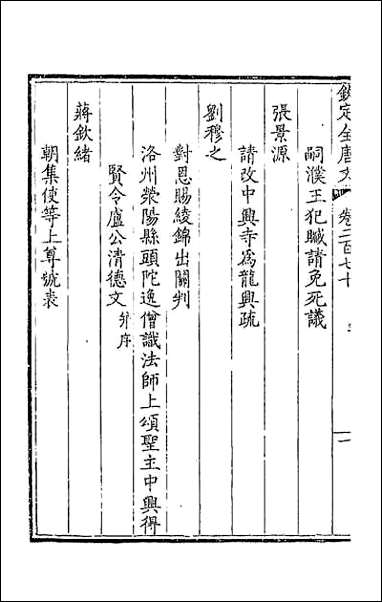 欽定全唐文 卷二百七十
嗣濮王犯贓請免死議
張景源
請改中興寺為龍興疏
劉穆之
對恩賜綾錦出關判
洛州滎陽縣頭陀逸僧識法師上頌聖主中興得
賢令盧公清德文并序
蔣欽緒
朝集使等上尊號表